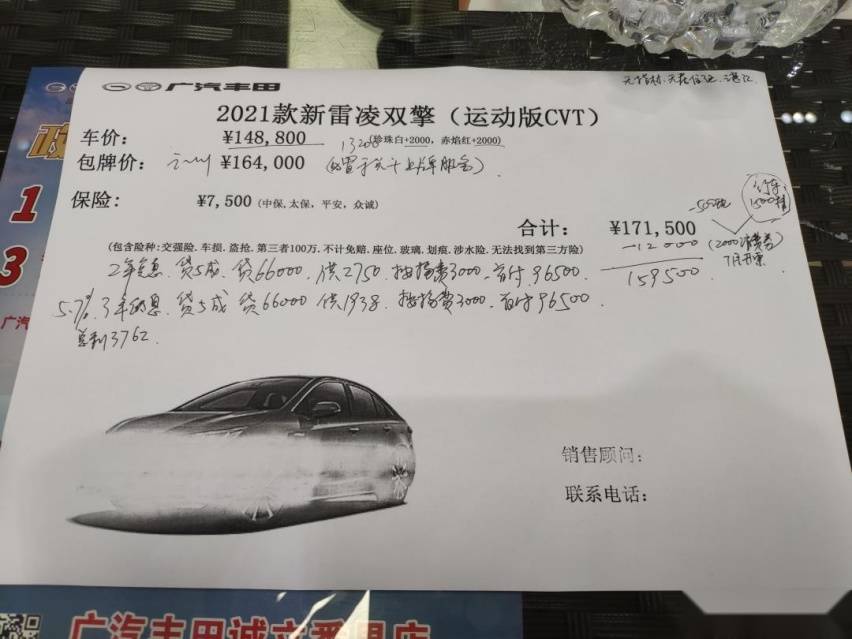 无指标.无居住证.湛江
广汽丰田
2021款新雷凌双擎（运动版CVT）
车价： ¥148,800 (珍珠白+2000，赤焰红+2000)
包牌价： ¥164,000
保险： ¥7,500 (中保,太保，平安，众诚)
合计： ¥171,500
-12000
(2000消费券)
7月开票
159500
(包含险种:交强险.车损.盗抢.第三者100万.不计免赔.座位.玻璃.划痕.涉水险.无法找到第三方险)
2年免息.贷5成.贷66000.供2750.按揭费3000.首付96500
5.7% 3年 息.贷5成 贷66000 供1938.按揭费3000.首付96500
总利3762.
销售顾问：
联系电话：
1
3
广汽
广汽丰田诚
店